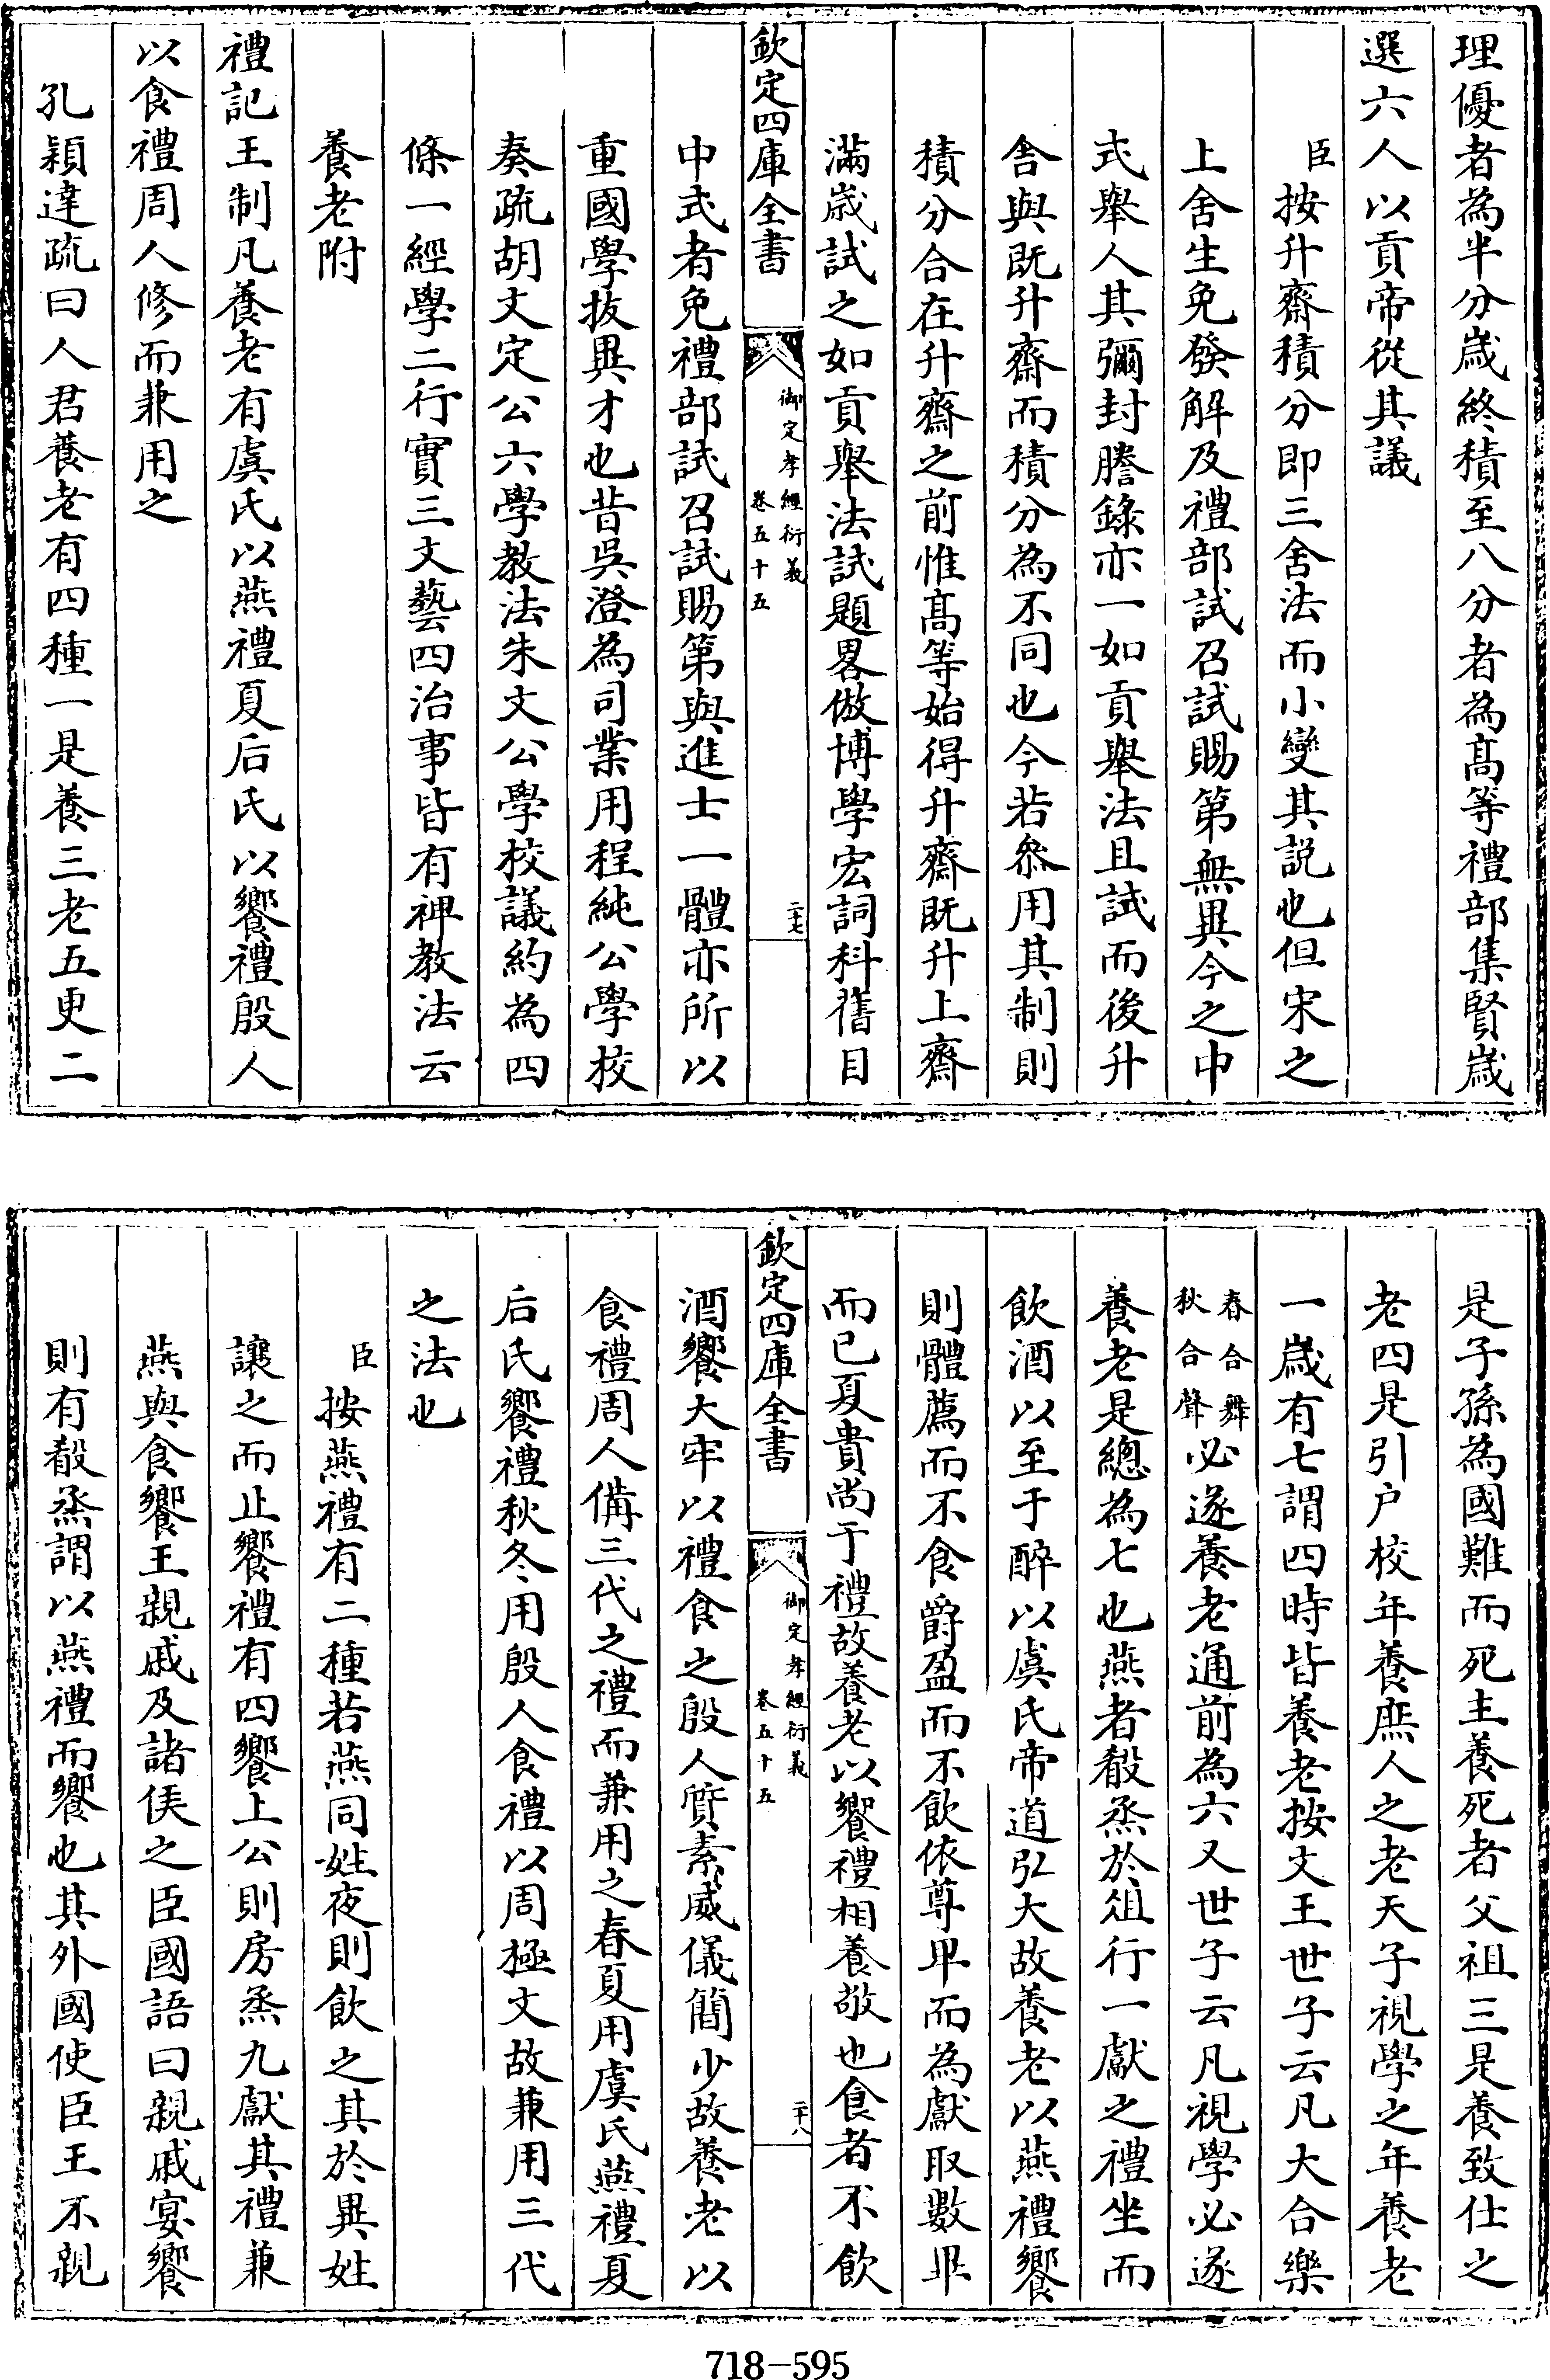 理優者為半分歲終積至八分者為髙等禮部集賢歲
選六人以貢帝從其議
臣按升齋積分即三舍法而小變其説也但宋之
上舍生免發解及禮部試召試賜第無異今之中
式舉人其彌封謄錄亦一如貢舉法且試而後升
舍與既升齋而積分為不同也今若叅用其制則
積分合在升齋之前惟髙等始得升齋既升上齋
滿歲試之如貢舉法試題畧倣博學宏詞科舊目
欽定四庫全書
御定孝經衍義
卷五十五
二十七
中式者免禮部試召試賜第與進士一體亦所以
重國學拔異才也昔吳澄為司業用程純公學校
奏疏胡文定公六學教法朱文公學校議約為四
條一經學二行實三文藝四治事皆有神教法云
養老附
禮記王制凡養老有虞氏以燕禮夏后氏以饗禮殷人
以食禮周人修而兼用之
孔穎達疏曰人君養老有四種一是養三老五更二
是子孫為國難而死主養死者父祖三是養致仕之
老四是引户校年養庶人之老天子視學之年養老
一歲有七謂四時皆養老按文王世子云凡大合樂
春合舞
秋合聲
必遂養老通前為六又世子云凡視學必遂
養老是總為七也燕者殽烝於俎行一獻之禮坐而
飲酒以至于醉以虞氏帝道弘大故養老以燕禮饗
則體薦而不食爵盈而不飲依尊卑而為獻取數畢
而已夏貴尚于禮故養老以饗禮相養敬也食者不飲
欽定四庫全書
御定孝經衍義
卷五十五
二十八
酒饗大牢以禮食之殷人質素威儀簡少故養老以
食禮周人備三代之禮而兼用之春夏用虞氏燕禮夏
后氏饗禮秋冬用殷人食禮以周極文故兼用三代
之法也
臣按燕禮有二種若燕同姓夜則飲之其於異姓
讓之而止饗禮有四饗上公則房烝九獻其禮兼
燕與食饗王親戚及諸侯之臣國語曰親戚宴饗
則有殽烝謂以燕禮而饗也其外國使臣王不親
718-595